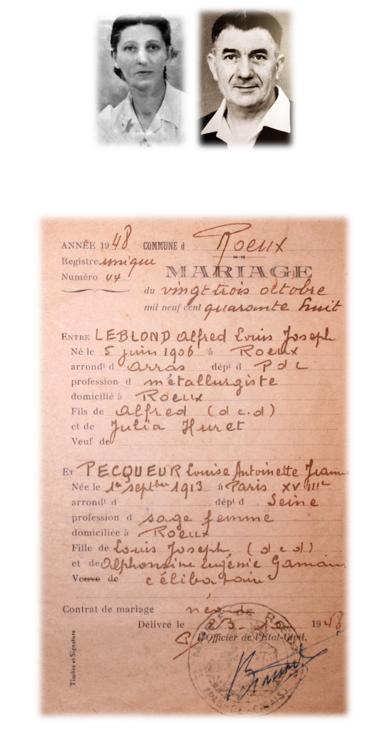 ANNÉE 1948 COMMUNE d Roeux
Registre unique
Numéro 44
MARIAGE
du vingt trois octobre
mil neuf cent quarante huit
ENTRE LEBLOND Alfred Louis Joseph
Né le 5 juin 1906 à Roeux
arrond^t d Arras dép^t d P d C
profession d métallurgiste
domicilié à Roeux
Fils de Alfred (dcd)
et de Julia Huret
Veuf de
ET PECQUEUR Louise Antoinette
Née le 1er septbre 1913 à Paris XVIII
arrond^t d dép^t d Seine
profession d sage femme
domiciliée à Roeux
Fille de Louis Joseph (dcd)
et de Alphonsine Eugénie
Veuve de célibataire
Contrat de mariage
Délivré le 1948
L'Officier de l'Etat-Civil,
Timbre et Signature